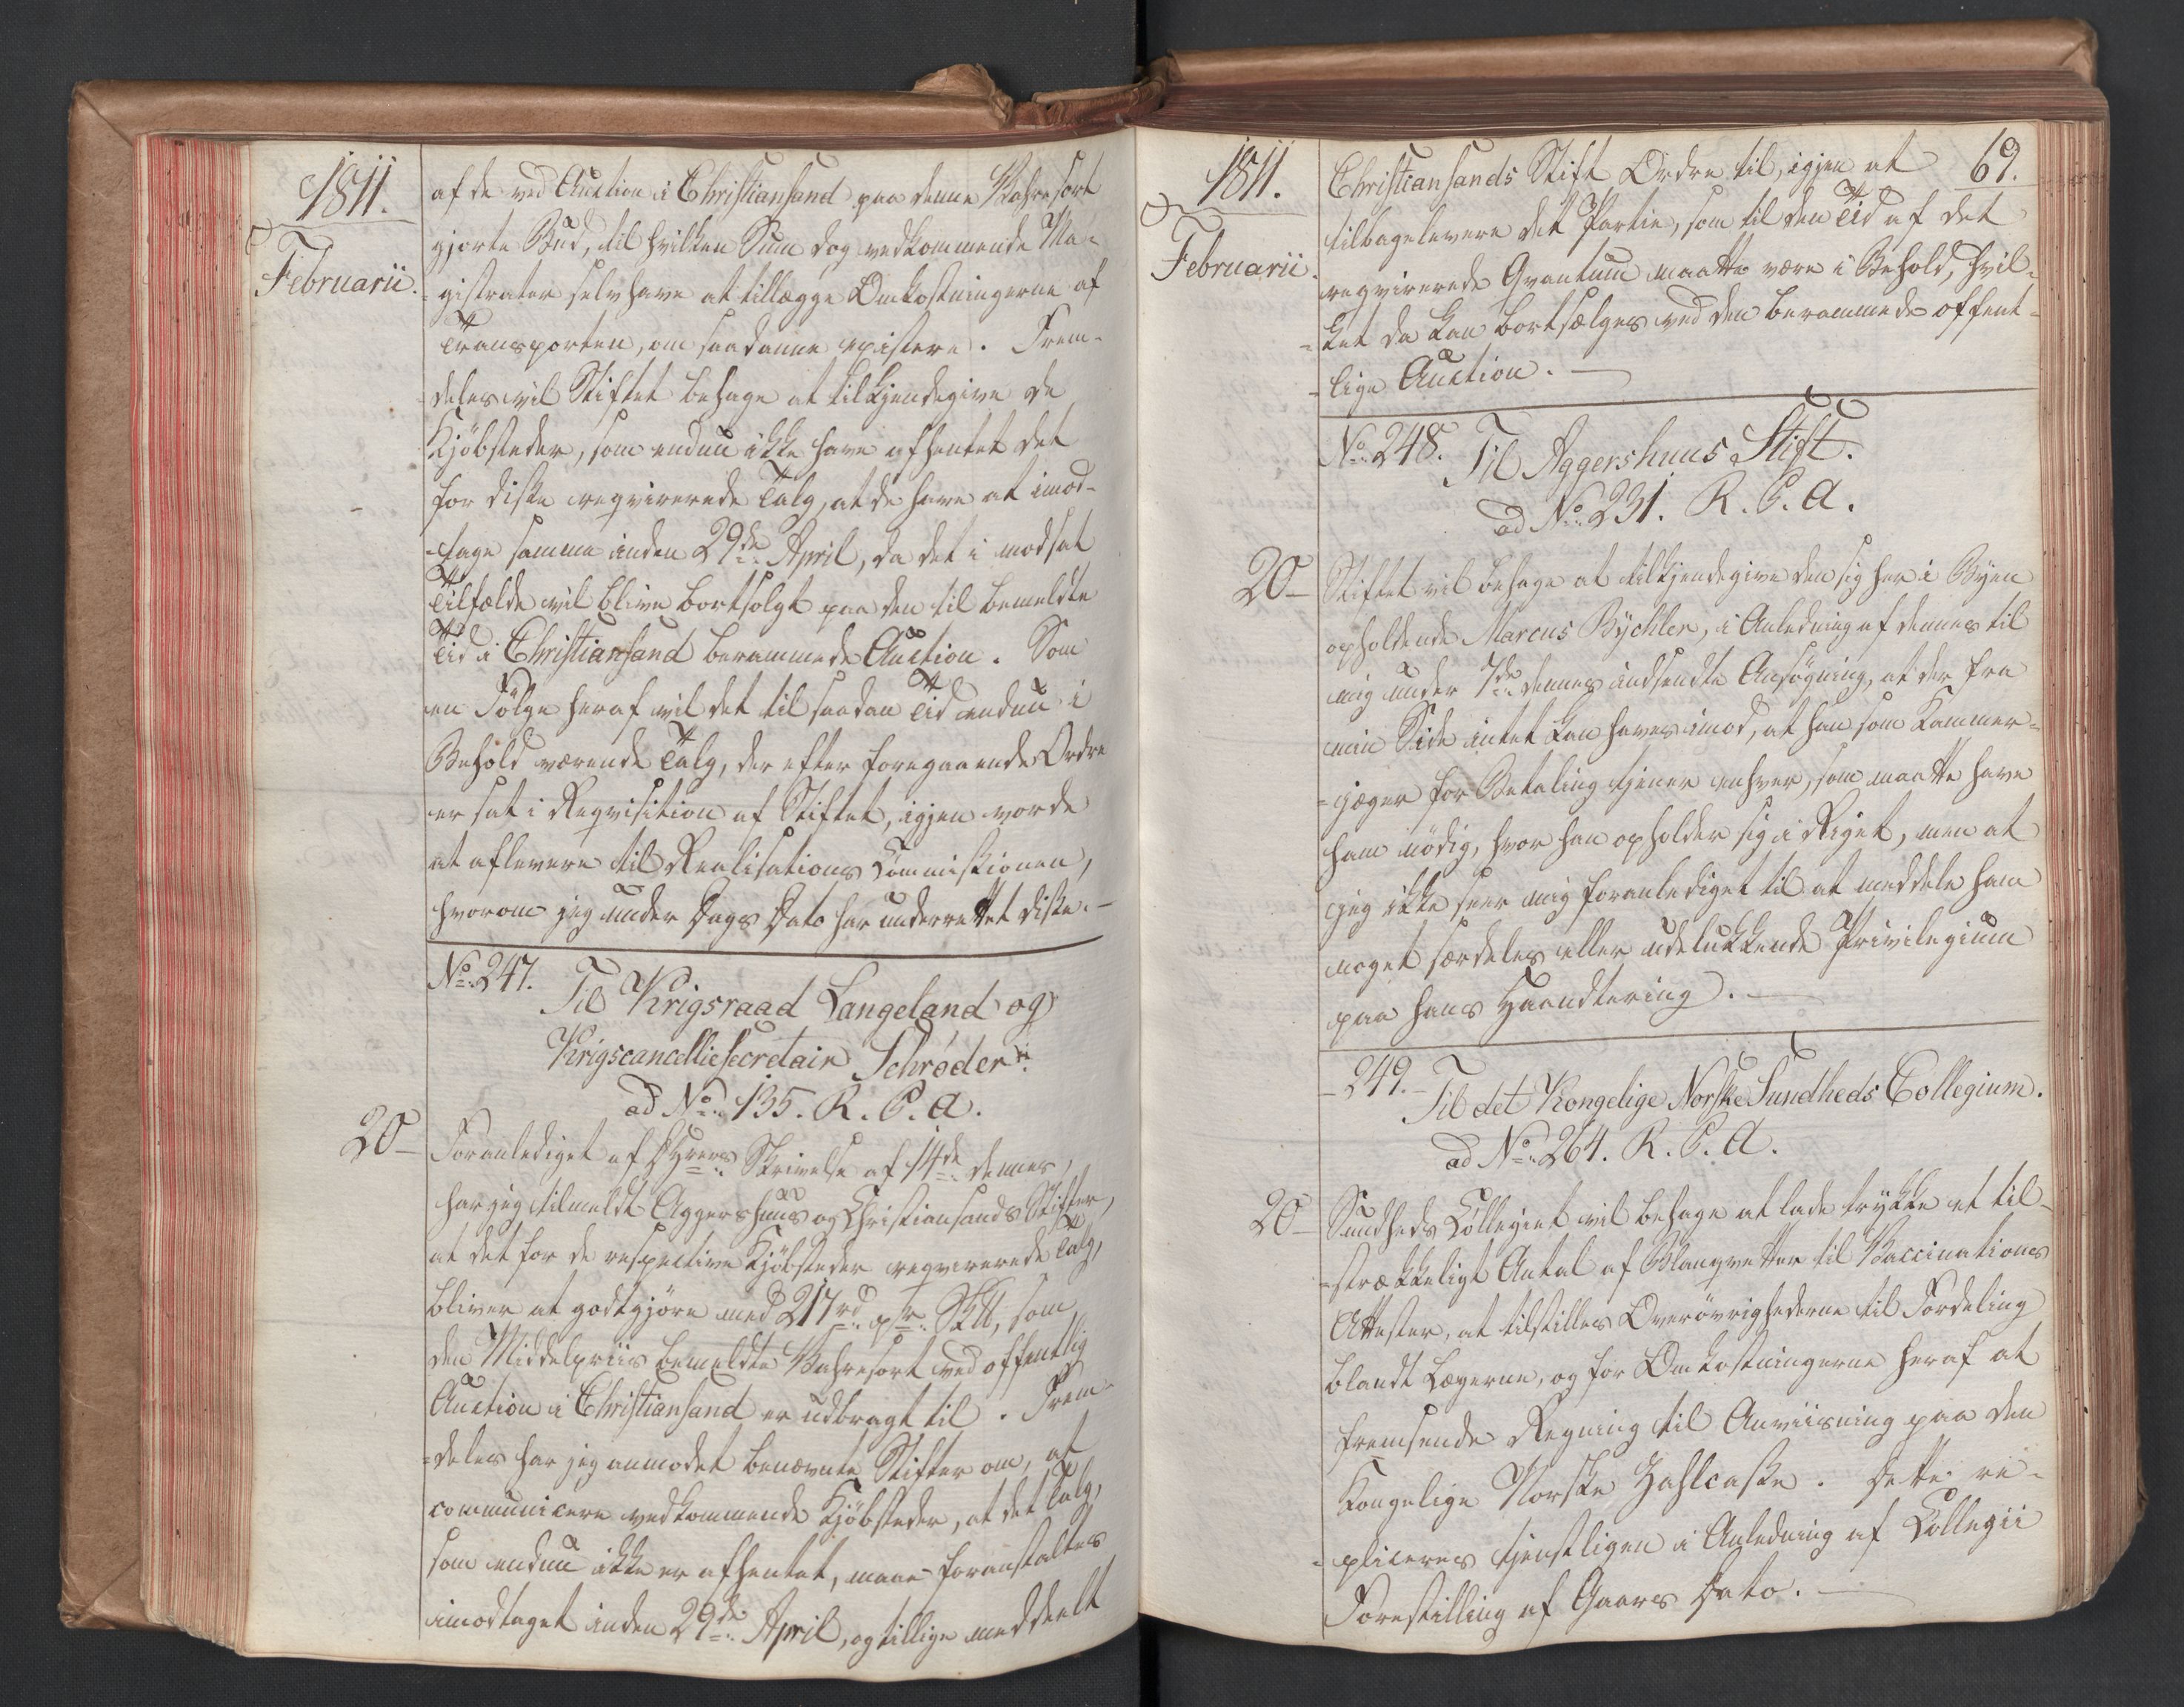 1811.
Februarii.
af de ved Auction i Christiansand paa denne Vahresort
gjorte Bud, til hvilken Sum dog vedkommende Ma-
=gistrater selv have at tillægge Omkostningerne af
Transporten, om saadanne existere. Frem-
deles vil Stiftet behage at tilkjendegive de
Kjöbsteder, som endnu ikke have afhentet det
for diſse reqvirerede Talg, at de have at imod-
=tage samme inden 29de April, da det i modsat
Tilfælde vil blive bortsolgt paa den til bemeldte
Tid i Christiansand berammede Auction. Som
en Fölge heraf vil det til saadan Tid endnu i
Behold værende Talg, der efter foregaaende Ordre
er sat i Reqvisition af Stiftet, igjen vorde
at aflevere til Realisations Commiſsionen,
hvorom jeg under Dags Dato har underrettet diſse. -
No. 247. Til Krigsraad Langeland og
Krigscancelliesecretair Schrøder.
ad No. 135. R. P. A.
20- Foranlediget af DHrrers Skrivelse af 14de dennes,
har jeg tilmeldt Aggershuus og Christiansands Stifter,
at det for de respective Kjöbsteder reqvirerede Talg,
bliver at godtgjöre med 217 rd. pr. Sk℔, som
den Middelpriis bemeldte Vahresort ved offentlig
Auction i Christiansand er udbragt til. Frem-
=deles har jeg anmodet benævnte Stifter om, at
communicere vedkommende Kjöbsteder, at det Talg,
som endnu ikke er afhentet, maae foranstaltes
imodtaget inden 29de April, og tillige meddeelt
1811.
Februarii.
69.
Christiansands Stift Ordre til, igjen at
tilbagelevere det Partie, som til den Tid af det
reqvirerede Qvantum maatte være i Behold, hvil-
=ket da kan bortsælges ved den berammede offent-
=lige Auction. -
No. 248. Til Aggershuus Stift.
ad No. 231. R. P. A.
20- Stiftet vil behage at tilkjendegive den sig her i Byen
opholdende Marcus Bychler, i Anledning af dennes til
mig under 7de dennes indsendte Ansögning, at der fra
min Side intet kan haves imod, at han som Kammer-
=jæger for Betaling tjener enhver, som maatte have
ham nödig, hvor han opholder sig i Riget, men at
jeg ikke seer mig foranlediget til at meddele ham
noget særdeles eller udelukkende Privilegium
paa hans Haandtering. -
- 249. - Til det Kongelige Norske Sundheds Collegium.
ad No. 264. R. P. A.
20- Sundheds Collegiet vil behage at lade trykke et til-
=strækkeligt Antal af Blanqvetter til Vaccinations
Attester, at tilstilles Overövrighederne til Fordeling
blandt Lægerne, og for Omkostningerne heraf at
fremsende Regning til Anviisning paa den
Kongelige Norske Zahlcaſse. Dette re-
=pliceres tjenstligen i Anledning af Collegii
Forestilling af Gaars Dato. -